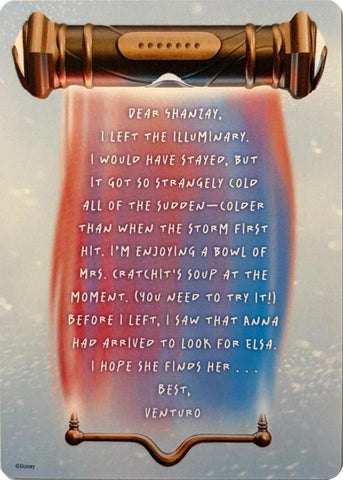 DEAR SHANZAY,
I LEFT THE ILLUMINARY.
I WOULD HAVE STAYED, BUT
IT GOT SO STRANGELY COLD
ALL OF THE SUDDEN—COLDER
THAN WHEN THE STORM FIRST
HIT. I'M ENJOYING A BOWL OF
MRS. CRATCHIT'S SOUP AT THE
MOMENT. (YOU NEED TO TRY IT!)
BEFORE I LEFT, I SAW THAT ANNA
HAD ARRIVED TO LOOK FOR ELSA.
I HOPE SHE FINDS HER . . .
BEST,
VENTURO
©Disney